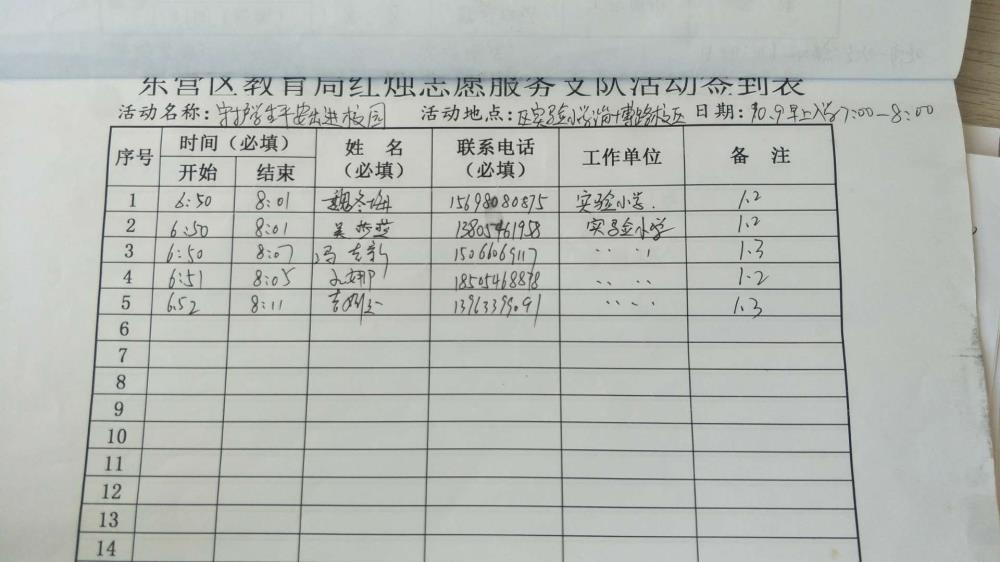 东营区教育局红烛志愿服务支队活动签到表
活动名称:守护学生平安出进校园 活动地点:区实验小学淄博路校区 日期:10.9早上入学7:00-8:00
序号 时间(必填) 姓 名(必填) 联系电话(必填) 工作单位 备 注
开始 结束
1 6:50 8:01 魏冬梅 15698080875 实验小学. 1.2
2 6:50 8:01 吴 13805461958 实验小学 1.2
3 6:50 8:07 冯吉新 15066069117 1.3
4 6:51 8:05 孔娜 18505468878 1.2
5 6.52 8:11 13963399091 1.3
6
7
8
9
10
11
12
13
14